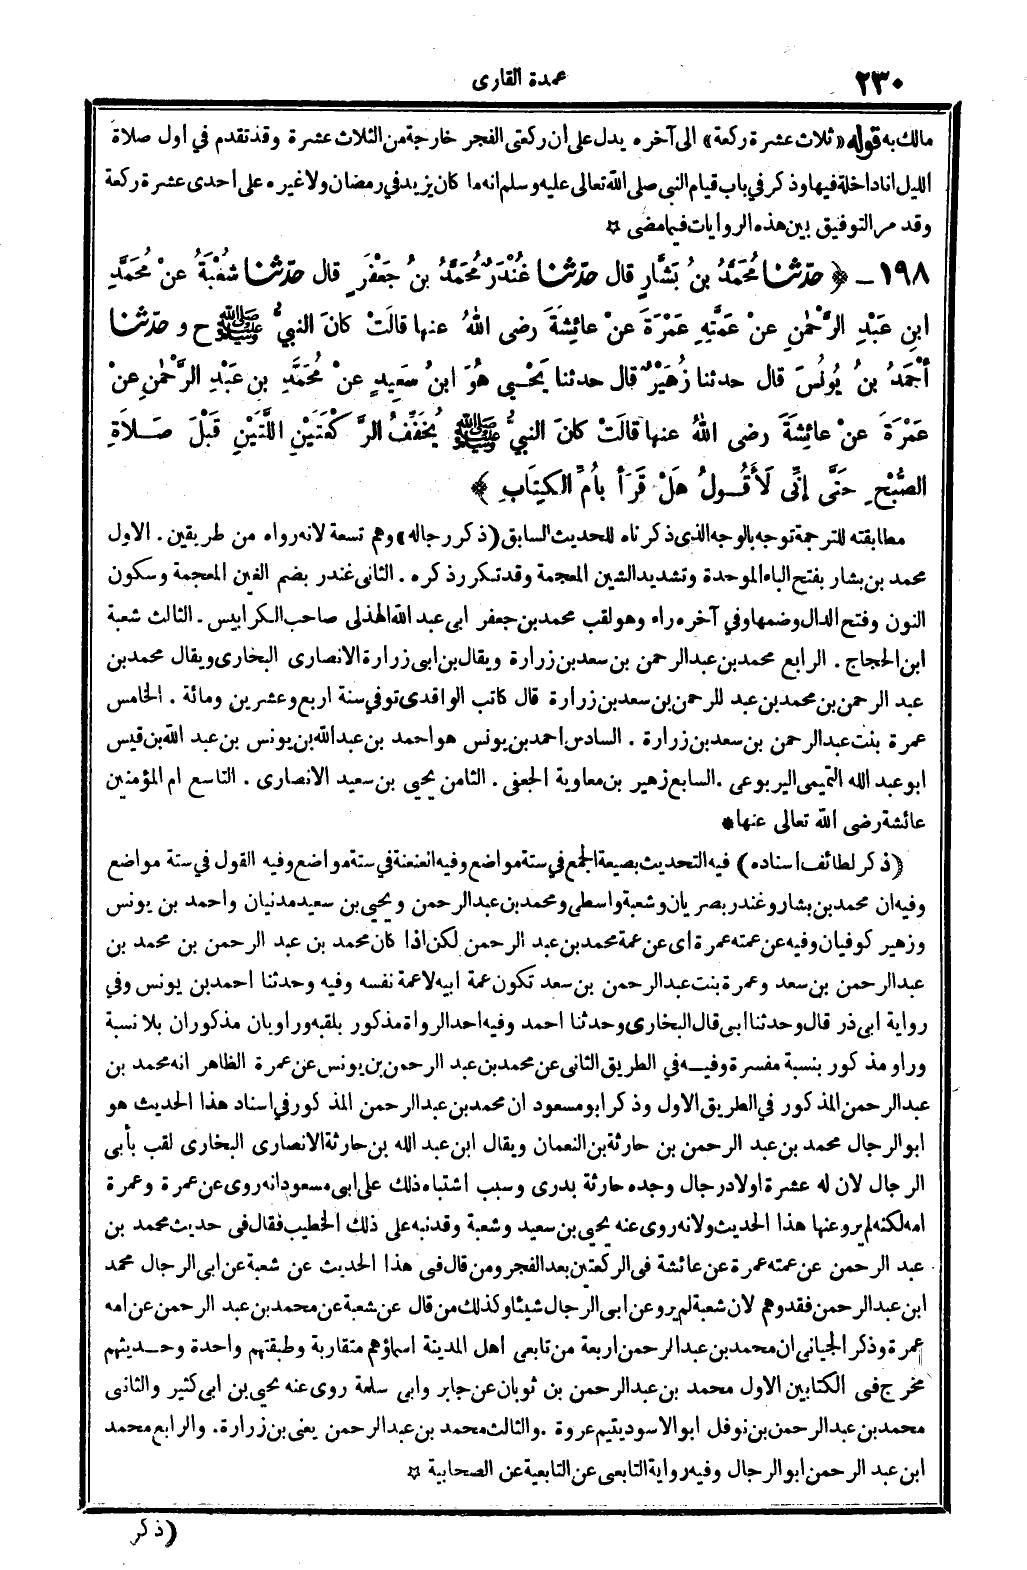 ٢٣٠
عمدة القارى
مالك به قوله «ثلاث عشرة ركعة» الى آخره يدل على أن ركعتى الفجر خارجة من الثلاث عشرة وقد تقدم في اول صلاة
الليل انها داخلة فيها وذكر في باب قيام النبى صلى الله تعالى عليه وسلم انه ما كان يزيد في رمضان ولا غيره على احدى عشرة ركعة
وقد مر التوفيق بين هذه الروايات فيما مضى ✩
١٩٨ ـ ﴿ حَدَّثَنَا مُحَمَّدُ بنُ بَشَّارٍ قال حَدَّثَنَا غُنْدَرٌ مُحَمَّدُ بنُ جَعْفَرٍ قال حَدَّثَنَا شُعْبَةُ عنْ مُحَمَّدِ
ابنِ عَبْدِ الرَّحْمٰنِ عنْ عَمَّتِهِ عَمْرَةَ عنْ عائِشَةَ رضى اللهُ عنها قالَتْ كانَ النبيُّ ﷺ ح و حَدَّثَنَا
أَحْمَدُ بنُ يُونُسَ قال حدثنا زُهَيْرٌ قال حدثنا يَحْيى هُوَ ابنُ سَعِيدٍ عنْ مُحَمَّدِ بنِ عَبْدِ الرَّحْمٰنِ عنْ
عَمْرَةَ عنْ عائِشَةَ رضى اللهُ عنها قالَتْ كانَ النبيُّ ﷺ يُخَفِّفُ الرَّكْعَتَيْنِ اللَّتَيْنِ قَبْلَ صَلاَةِ
الصُّبْحِ حَتَّى إنِّى لَأَقُولُ هَلْ قَرَأَ بِأُمِّ الكِتَابِ ﴾
مطابقته للترجمة توجه بالوجه الذى ذكرناه للحديث السابق (ذكر رجاله) وهم تسعة لانه رواه من طريقين . الاول
محمد بن بشار بفتح الباء الموحدة وتشديد الشين المعجمة وقد تكرر ذكره . الثانى غندر بضم الغين المعجمة وسكون
النون وفتح الدال وضمها وفي آخره راء وهو لقب محمد بن جعفر ابى عبد الله الهذلى صاحب الكرابيس . الثالث شعبة
ابن الحجاج . الرابع محمد بن عبد الرحمن بن سعد بن زرارة ويقال بن ابى زرارة الانصارى البخارى ويقال محمد بن
عبد الرحمن بن محمد بن عبد للرحمن بن سعد بن زرارة قال كاتب الواقدى توفي سنة اربع وعشرين ومائة . الخامس
عمرة بنت عبد الرحمن بن سعد بن زرارة . السادس احمد بن يونس هو احمد بن عبد الله بن يونس بن عبد الله بن قيس
ابو عبد الله التميمى اليربوعى . السابع زهير بن معاوية الجعفى . الثامن يحيى بن سعيد الانصارى . التاسع ام المؤمنين
عائشة رضى الله تعالى عنها*
(ذكر لطائف اسناده) فيه التحديث بصيعة الجمع في ستة مواضع وفيه العنعنة في ستة مواضع وفيه القول في ستة مواضع
وفيه ان محمد بن بشار وغندر بصريان وشعبة واسطى ومحمد بن عبد الرحمن ويحيى بن سعيد مدنيان واحمد بن يونس
وزهير كوفيان وفيه عن عمته عمرة اى عن عمة محمد بن عبد الرحمن لكن اذا كان محمد بن عبد الرحمن بن محمد بن
عبد الرحمن بن سعد وعمرة بنت عبد الرحمن بن سعد تكون عمة ابيه لا عمة نفسه وفيه وحدثنا احمد بن يونس وفي
رواية ابى ذر قال وحدثنا ابى قال البخارى وحدثنا احمد وفيه احد الرواة مذكور بلقبه وراويان مذكوران بلا نسبة
وراو مذكور بنسبة مفسرة وفيه في الطريق الثانى عن محمد بن عبد الرحمن بن يونس عن عمرة الظاهر انه محمد بن
عبد الرحمن المذكور في الطريق الاول وذكر ابو مسعود ان محمد بن عبد الرحمن المذكور في اسناد هذا الحديث هو
ابو الرجال محمد بن عبد الرحمن بن حارثة بن النعمان ويقال ابن عبد الله بن حارثة الانصارى البخارى لقب بأبى
الرجال لان له عشرة اولاد رجال وجده حارثة بدرى وسبب اشتباه ذلك على ابى مسعود انه روى عن عمرة وعمرة
امه لكنه لم يرو عنها هذا الحديث ولانه روى عنه يحيى بن سعيد وشعبة وقد نبه على ذلك الخطيب فقال فى حديث محمد بن
عبد الرحمن عن عمته عمرة عن عائشة فى الركعتين بعد الفجر ومن قال فى هذا الحديث عن شعبة عن ابى الرجال محمد
ابن عبد الرحمن فقد وهم لان شعبة لم يرو عن ابى الرجال شيئا وكذلك من قال عن شعبة عن محمد بن عبد الرحمن عن امه
عمرة وذكر الجيانى ان محمد بن عبد الرحمن اربعة من تابعى اهل المدينة اسماؤهم متقاربة وطبقتهم واحدة وحديثهم
مخرج فى الكتابين الاول محمد بن عبد الرحمن بن ثوبان عن جابر وابى سلمة روى عنه يحيى بن ابى كثير والثانى
محمد بن عبد الرحمن بن نوفل ابو الاسود يتيم عروة . والثالث محمد بن عبد الرحمن يعنى بن زرارة. والرابع محمد
ابن عبد الرحمن ابو الرجال وفيه رواية التابعى عن التابعية عن الصحابية ✩
(ذكر